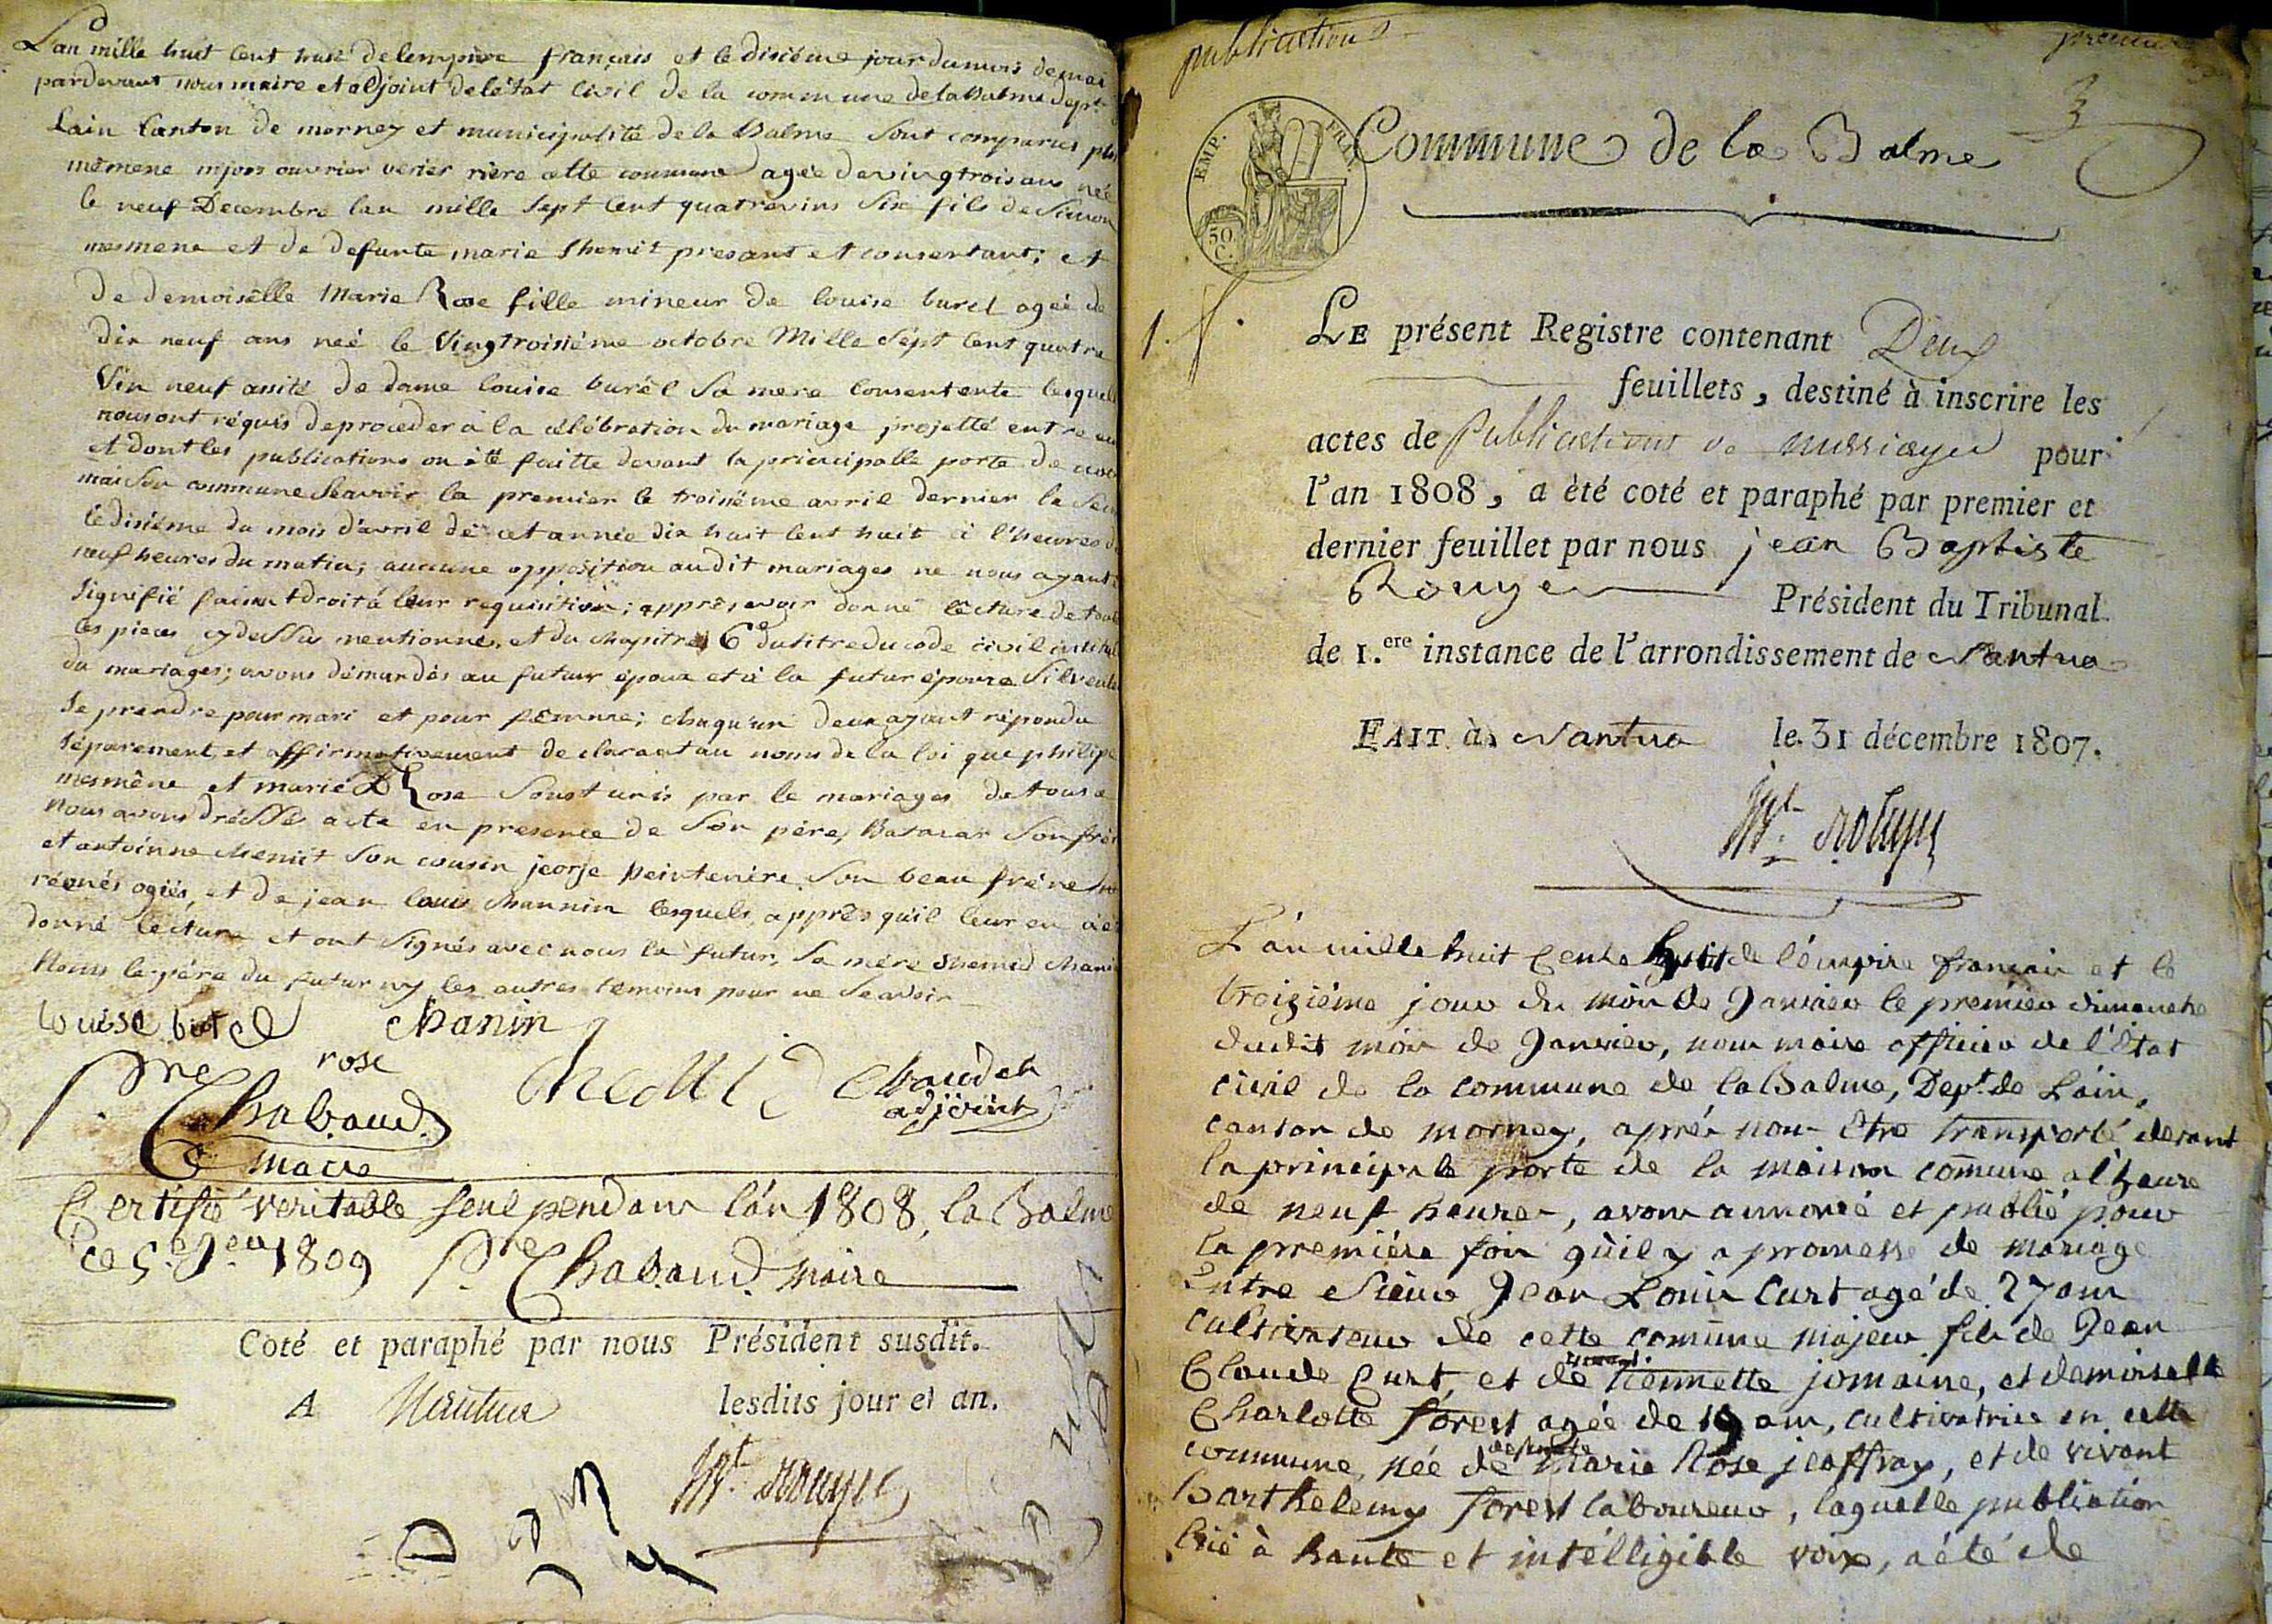 L'an mille huit cent huit de lempire français et le disiéme jour du mois de mai
pardevant nous maire et adjoint de létat civil de la commune de la Balme Dept
Lain Canton de mornay et municipalité de la Balme Sont comparus
mêmene majors ouvrier verier riere cette commune agée de vingtrois ans née
le neuf Decembre lan mille Sept Cent quatrevins Six fils de Simon
mesmene et de defunte marie Chemit presant et consentant; et
de demoiselle Marie Rose fille mineur de louise burel ageé de
dix neuf ans neé le Vingtroisiéme octobre Mille Sept Cent quatre
Vin neuf asisté de dame louise burél Sa mere Consentente lesquels
nous ont réquis de proceder à la célébration du mariage projetté entre eux
et dont les publications on été faitte devant la principalle porte de
maison commune Seavoir la premier le troisiéme avril dernier la
le disiéme du mois d'avril de cet année dix huit Cent huit à l'heures
neuf heures du matin; aucune opposition audit mariages ne nous ayant
Signifié faisant droit à leur requisition; apprés avoir donné lecture de
les pieces cy dessus mentionné, et du chapitre 6e du titre du code civil
du mariages; avons démandés au futur époux et à la futur épouse Silveulent
Se prendre pour mari et pour femme; chaqu'un deux ayant répondu
Séparement et affirmativement declarant au nom de la loi que philipe
mesmêne et marie Rose Sont unis par le mariages de tous
nous avons dréssés acte en presence de Son pére, Batasar Son frér
et antoinne chemit Son cousin jeorje peintenére Son beau frére
et de jean louis channin lesquels apprês qu'il leur en
donné lecture et ont Signés avec nous la futur, Sa mére chemid
Nonns le pére du futur ny les autres temoins pour ne Seavoir
louise burel chanin
rose
Pre Chabaud
maire
Chemid Chaudet
adjoint
Certifié veritable seul pendant l'án 1808, la Balme
ce 5e Jer 1809 Pre Chabaud maire
Coté et paraphé par nous Président susdit.
A Nantua lesdits jour et an.
Bt Rouyer
publications
3
Commune de la Balme
EMP. FRAN.
50 C.
1. f.
LE présent Registre contenant Deux
feuillets, destiné à inscrire les
actes de Publications de marriages pour
l'an 1808, a èté coté et paraphé par premier et
dernier feuillet par nous jean Baptiste
Rouyer Président du Tribunal
de 1.ere instance de l'arrondissement de Nantua
FAIT à Nantua le 31 décembre 1807.
Bt Rouyer
L'án mille huit cent huit de l'émpire français et le
troiziéme jour du mois de Janvier le premier dimanche
dudit mois de Janvier, nous maire officier de l'état
civil de la commune de la Balme, Dept. de Láin,
canton de mornay, aprés nous être transporté devant
la principale porte de la maison comūne a l'heure
de neuf heures, avons annoncé et publié pour
la premiére fois qu'il y a promesse de mariage
Entre Sieur Jean Louis Curt agé de 27 ans
cultivateur de cette comūne majeur fils de Jean
Claude Curt, et de tiennette jomaine, et demoiselle
Charlotte forest agée de 19 ans, cultivatrice en cette
commune, née de defunte Marie Rose jeoffray, et de vivant
Barthelemy forest laboureur, laquelle publication
luë à haute et intélligible voix, a été de